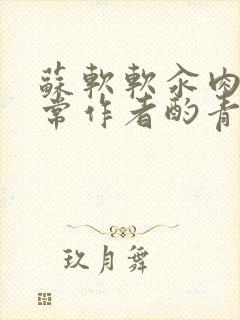 蘇軟軟汆肉
常作者酌青
玖月舞